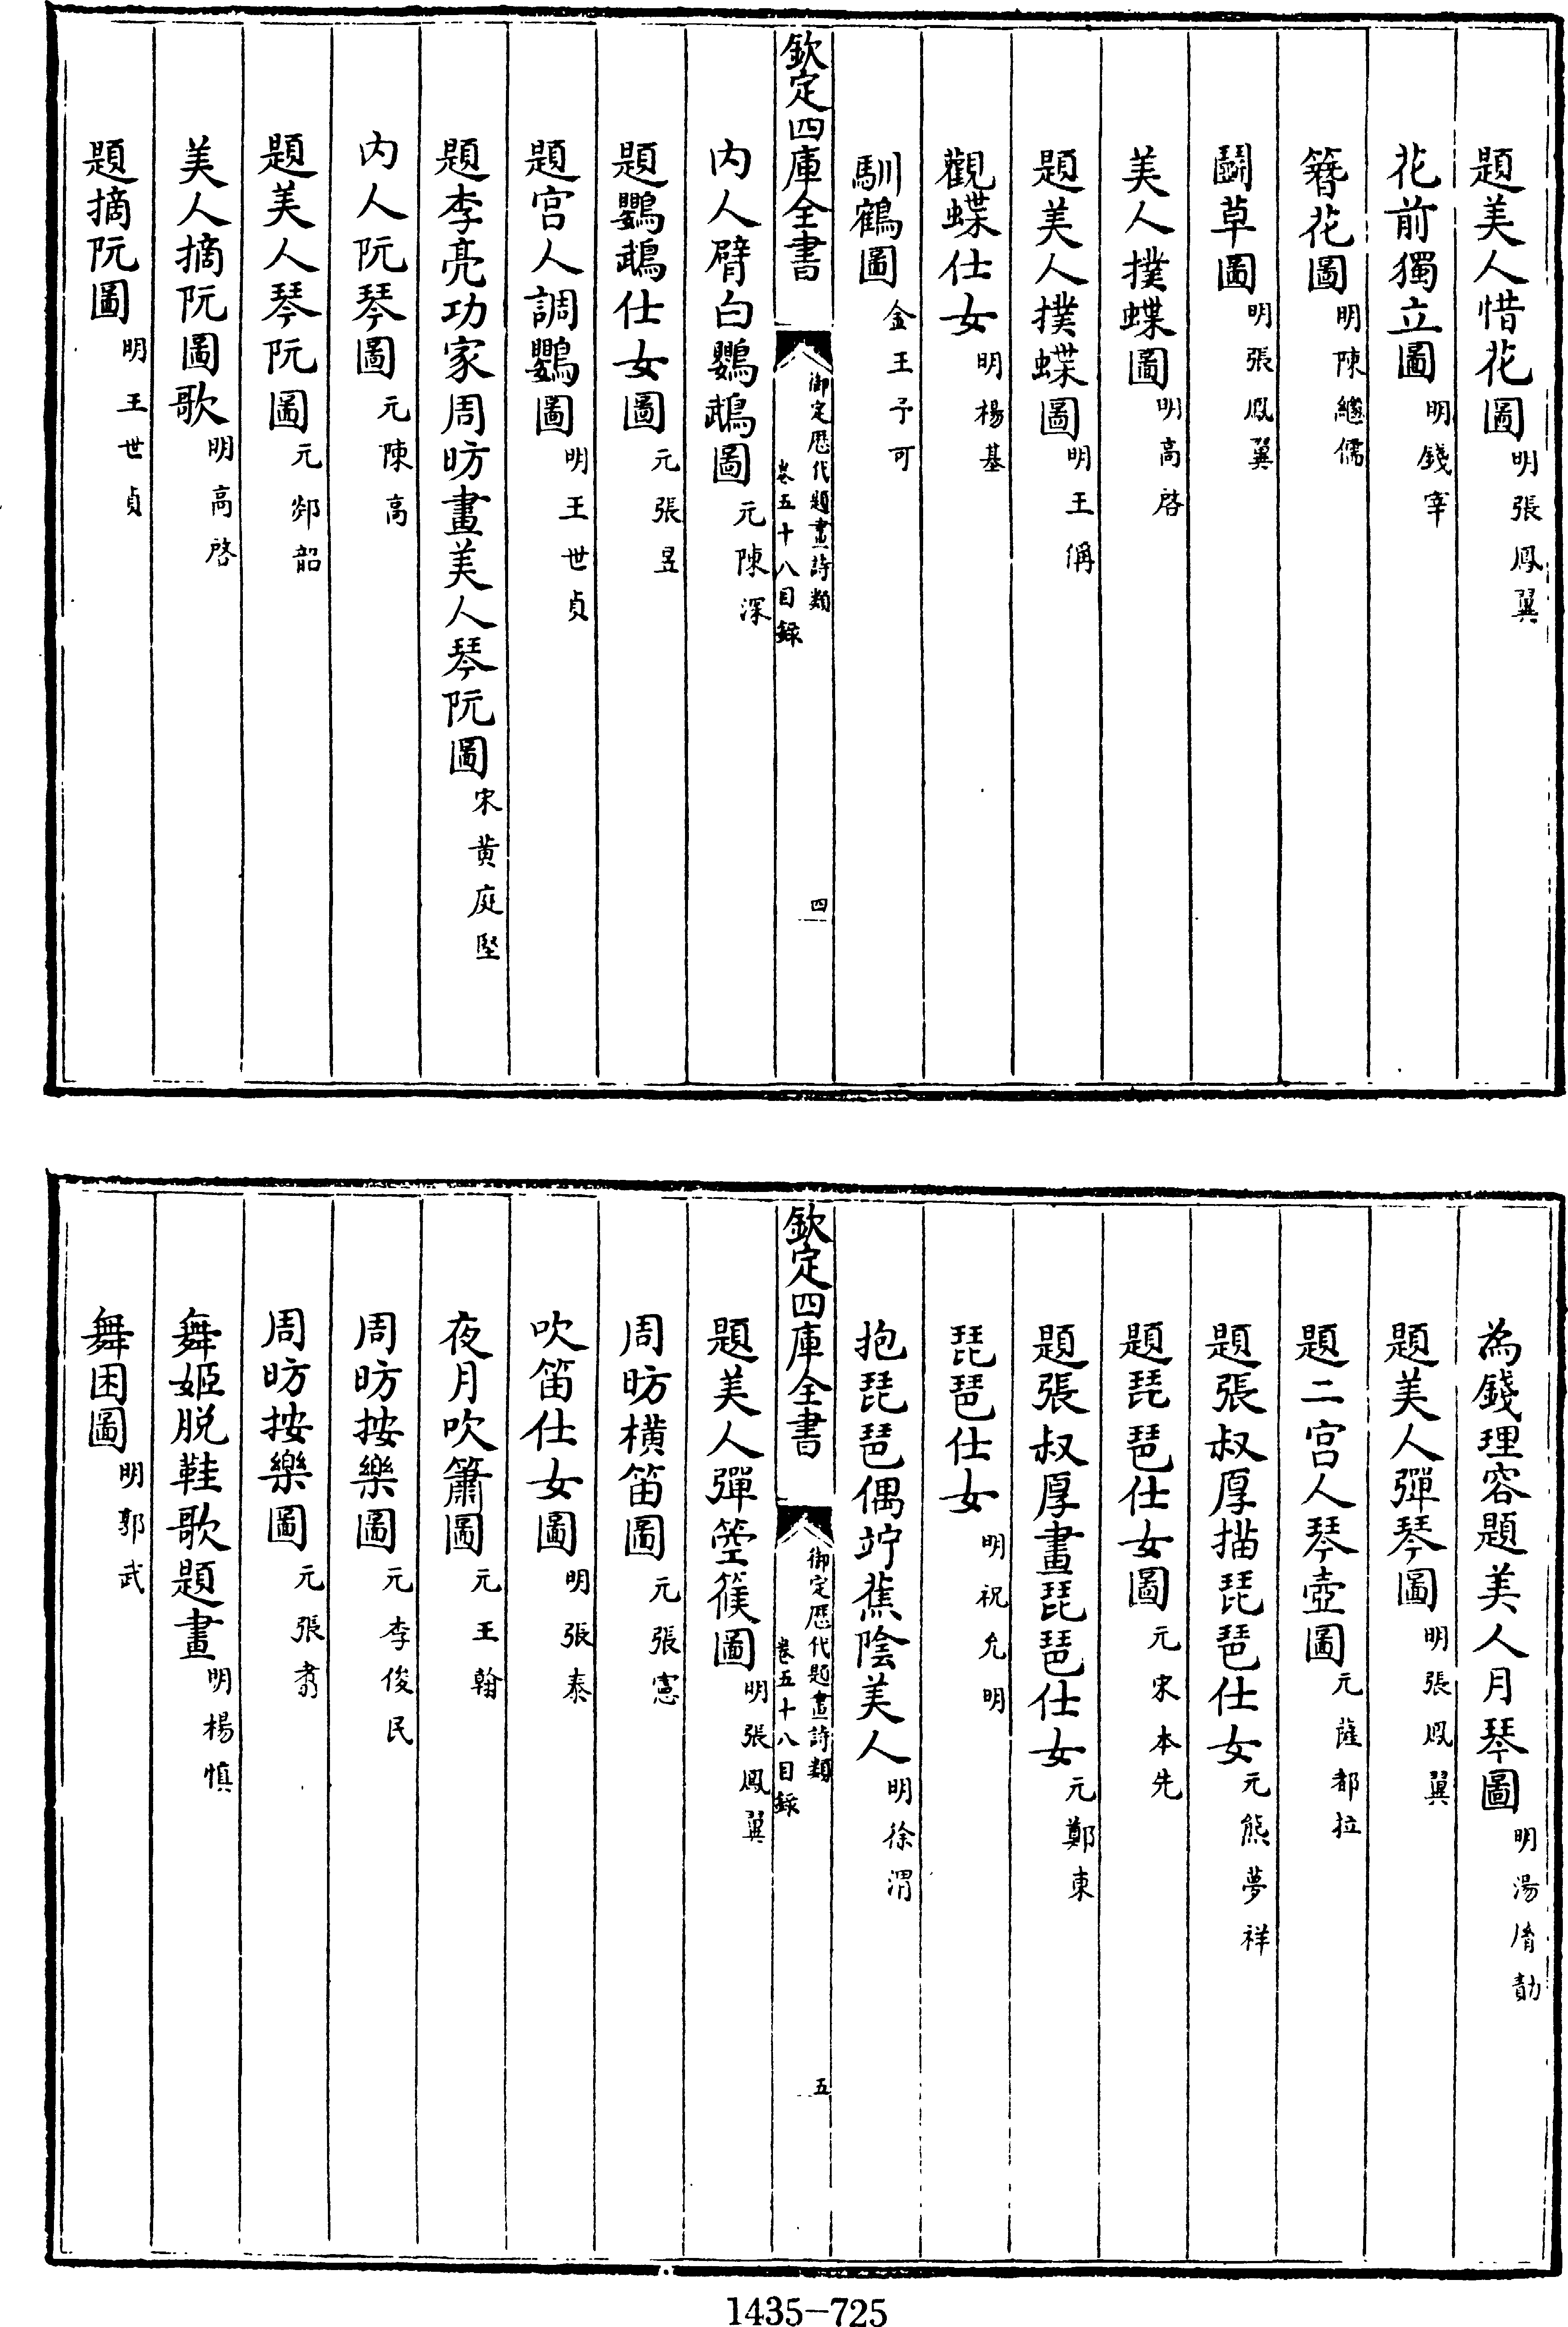 題美人惜花圖明張鳳翼
花前獨立圖明錢宰
簪花圖明陳繼儒
鬬草圖明張鳳翼
美人撲蝶圖明高啓
題美人撲蝶圖明王偁
觀蝶仕女明楊基
馴鶴圖金王予可
欽定四庫全書
御定歷代題畫詩類
卷五十八目録
四
内人臂白鸚鵡圖元陳深
題鸚鵡仕女圖元張昱
題宫人調鸚圖明王世貞
題李亮功家周昉畫美人琴阮圖宋黄庭堅
内人阮琴圖元陳高
題美人琴阮圖元郯韶
美人摘阮圖歌明高啓
題摘阮圖明王世貞
為錢理容題美人月琴圖明湯胤勣
題美人彈琴圖明張鳳翼
題二宫人琴壺圖元薩都拉
題張叔厚描琵琶仕女元熊夢祥
題琵琶仕女圖元宋本先
題張叔厚畫琵琶仕女元鄭東
琵琶仕女明祝允明
抱琵琶偶竚蕉陰美人明徐渭
欽定四庫全書
御定歷代題畫詩類
卷五十八目録
五
題美人彈箜篌圖明張鳳翼
周昉横笛圖元張憲
吹笛仕女圖明張泰
夜月吹簫圖元王翰
周昉按樂圖元李俊民
周昉按樂圖元張翥
舞姬脱鞋歌題畫明楊慎
舞困圖明郭武
1435-725